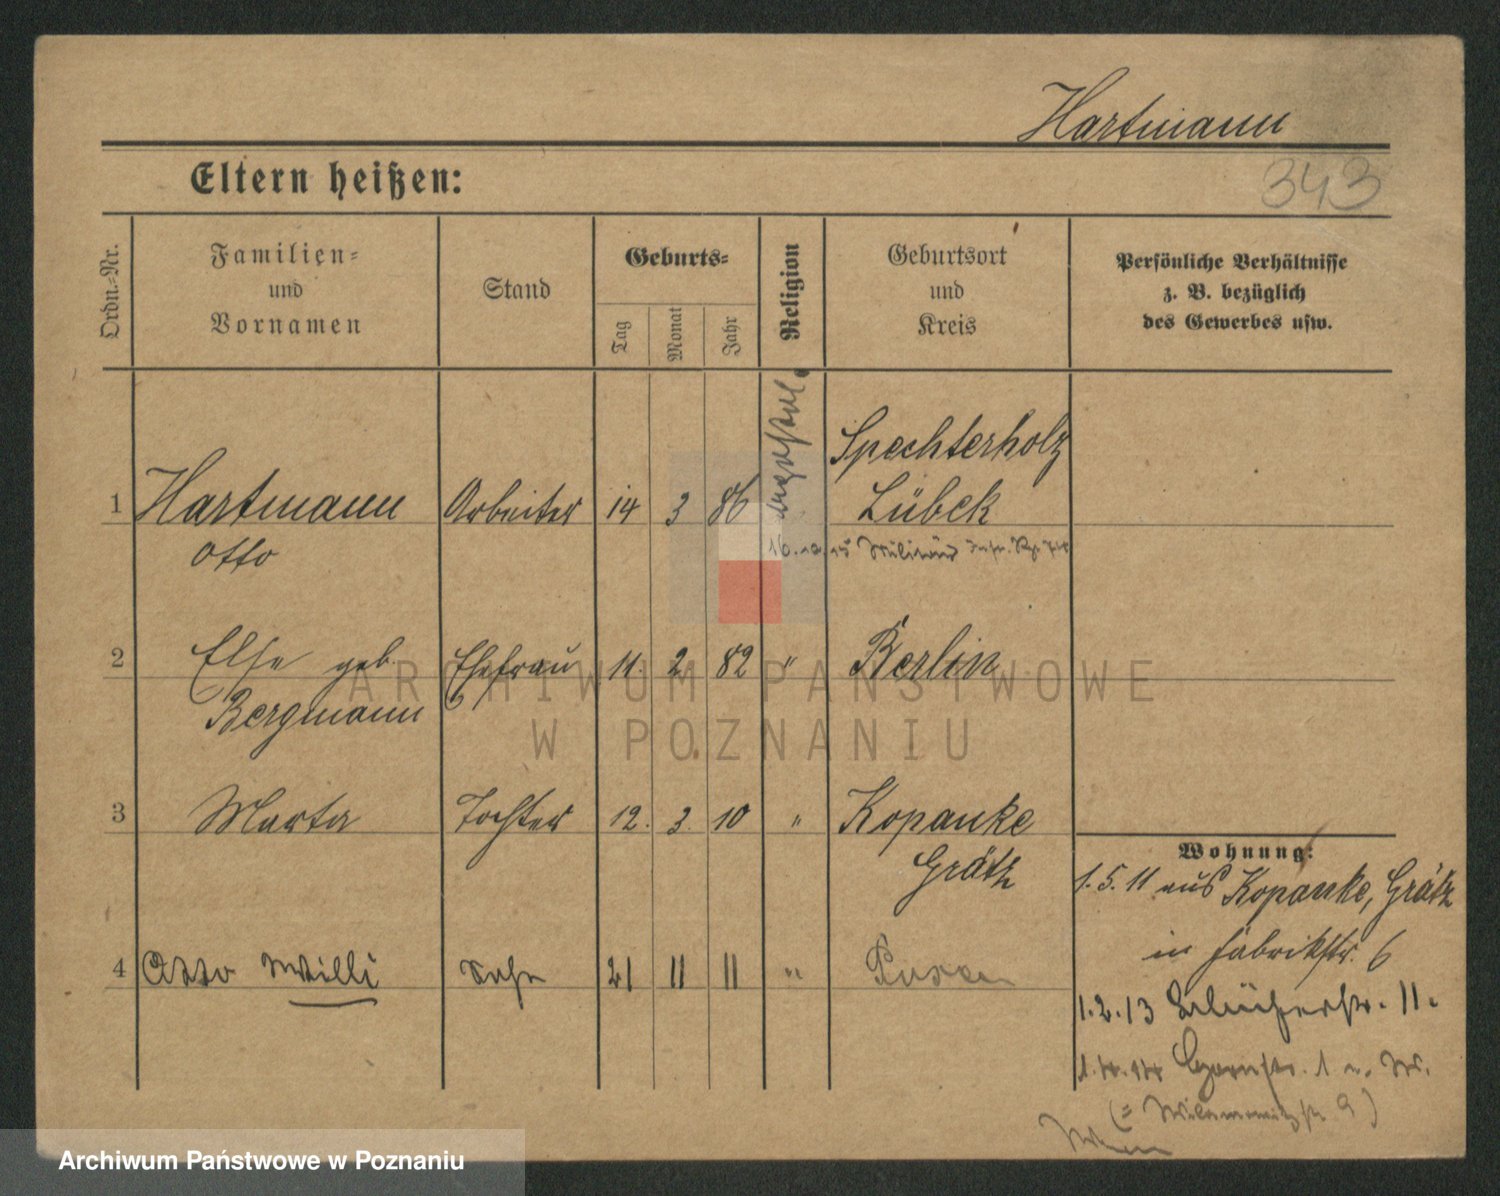 Hartmann
343
Eltern heißen:
Ordn.-Nr.
Familien-
und
Vornamen
Stand
Geburts-
Tag
Monat
Jahr
Religion
Geburtsort
und
Kreis
Persönliche Verhältnisse
z. B. bezüglich
des Gewerbes usw.
1 Hartmann Arbeiter 14 3 86 Spechterholz
Lübek
Otto
16. 10. 15 Militär
2 Else geb. Ehefrau 11. 2. 82 " Berlin
Bergmann
3 Marta Tochter 12. 3. 10 " Kopanke
Grätz
4 Otto Willi Sohn 21 11 11 " Posen
Wohnung:
1. 5. 11 aus Kopanke, Grätz
in Fabrikstr. 6
1. 2. 13 Blücherstr. 11.
ARCHIWUM PAŃSTWOWE
W POZNANIU
Archiwum Państwowe w Poznaniu